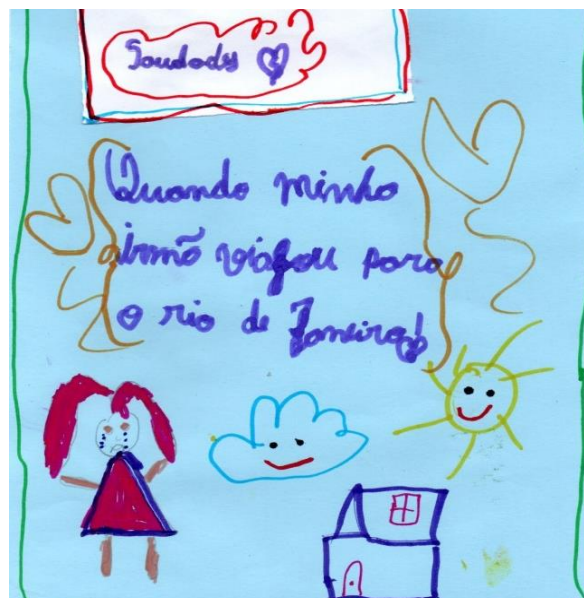 Saudads
Quando minha
irmã viajou para
o rio de Janeiro!